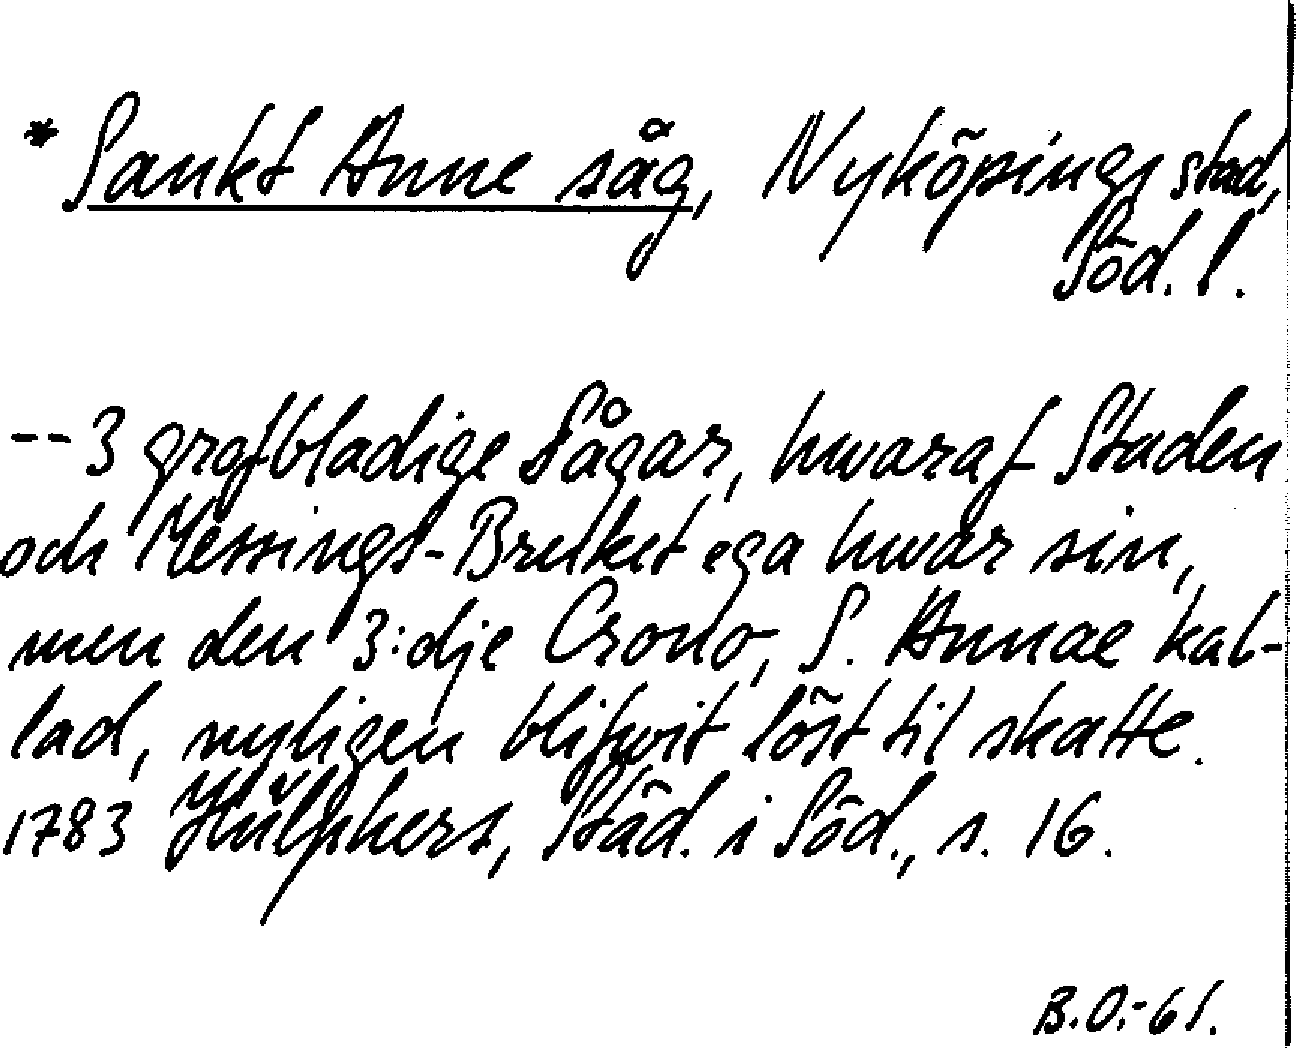 * Sankt Anne såg, Nyköpings stad,
Söd. l.
-- 3 grofbladige Sågar, hwaraf Staden
och Messings-Bruket ega hwar sin,
men den 3:dje Crono, S. Annae kal-
lad, nyligen blifwit löst til skatte.
1783 Hülphers, Städ. i Söd., s. 16.
B.O.-61.